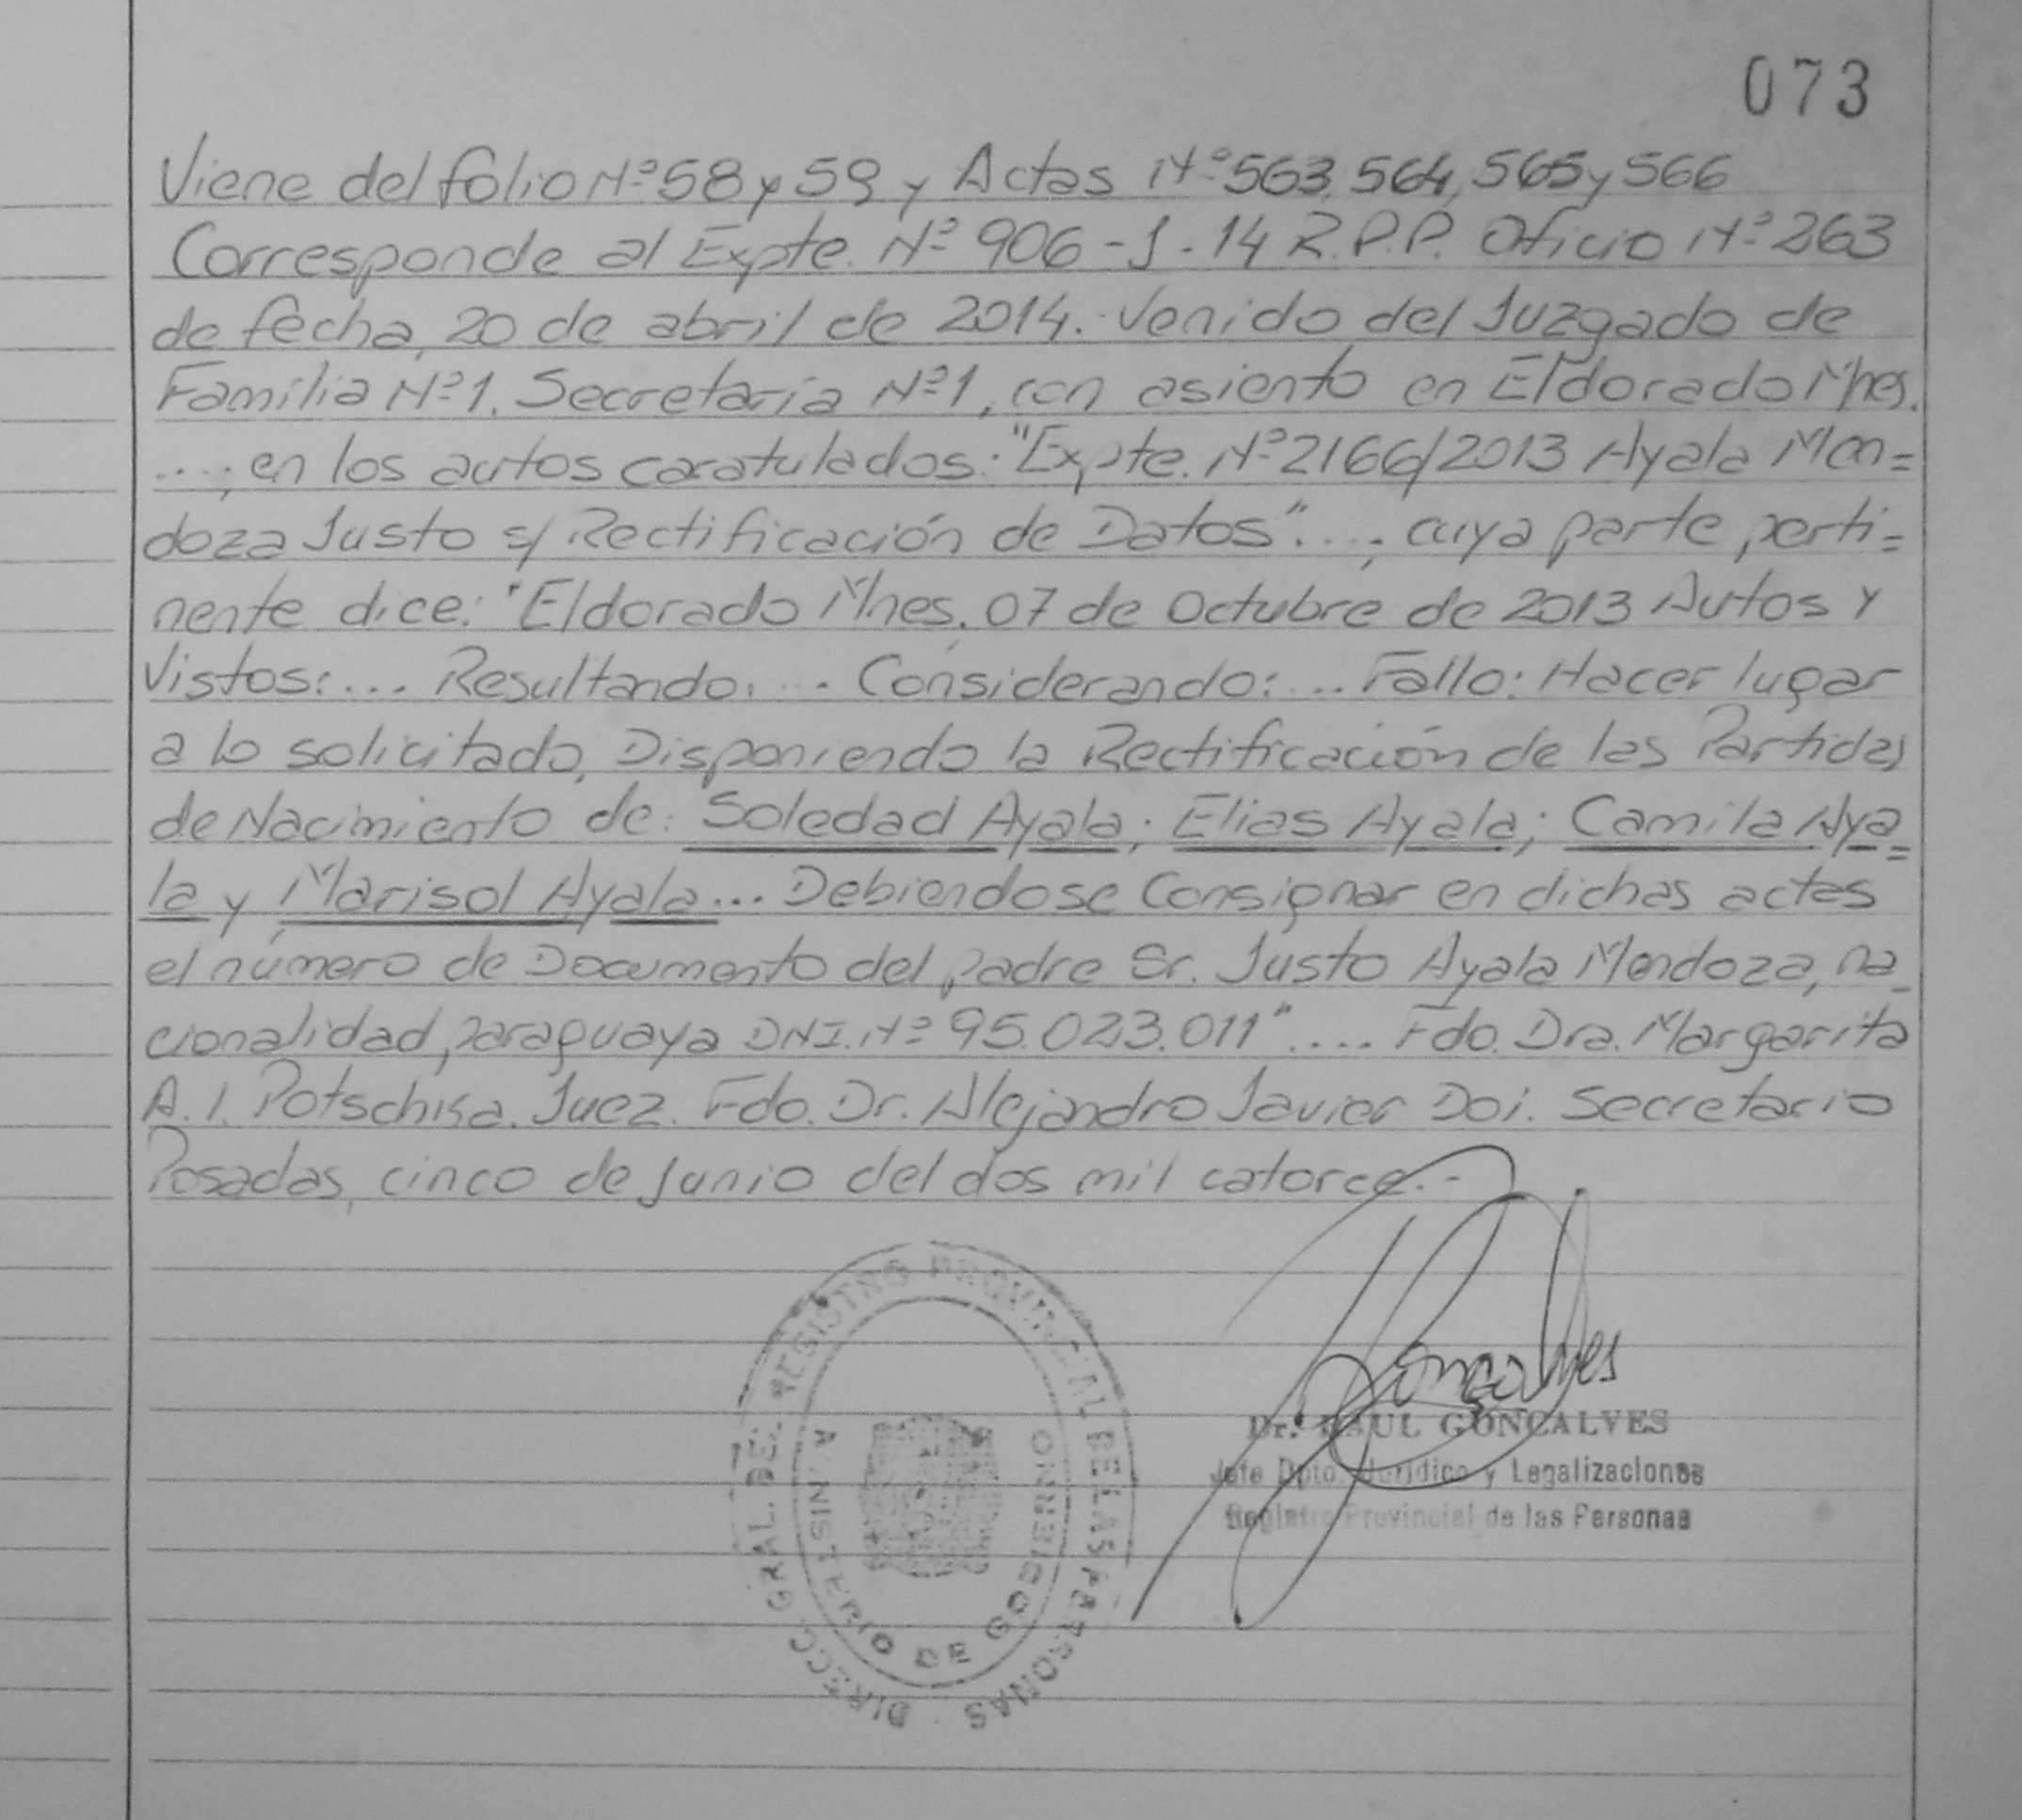 073
Viene del folio Nº 58 y 59 y Actas Nº 563, 564, 565 y 566
Corresponde al Expte. Nº 906 - J - 14 R.P.P. Oficio Nº 263
de fecha, 20 de abril de 2014. Venido del Juzgado de
Familia Nº 1. Secretaría Nº 1, con asiento en Eldorado Mnes.
...; en los autos caratulados: "Expte. Nº 2166/2013 Ayala Men=
doza Justo s/ Rectificación de Datos"...; cuya parte perti=
nente dice: "Eldorado Mnes. 07 de Octubre de 2013 Autos y
Vistos:... Resultando:... Considerando:... Fallo: Hacer lugar
a lo solicitado, Disponiendo la Rectificación de las Partidas
de Nacimiento de: Soledad Ayala; Elias Ayala; Camila Aya=
la y Marisol Ayala... Debiendose Consignar en dichas actas
el número de Documento del padre Sr. Justo Ayala Mendoza, na_
cionalidad paraguaya DNI. Nº 95.023.011".... Fdo. Dra. Margarita
A. I. Potschka. Juez. Fdo. Dr. Alejandro Javier Doi. Secretario
Posadas, cinco de Junio del dos mil catorce.-
DIRECC. GRAL. DEL REGISTRO PROVINCIAL DE LAS PERSONAS
MINISTERIO DE GOBIERNO
Goncalves
Dr. RAUL GONCALVES
Jefe Dpto. Jurídico y Legalizaciones
Registro Provincial de las Personas